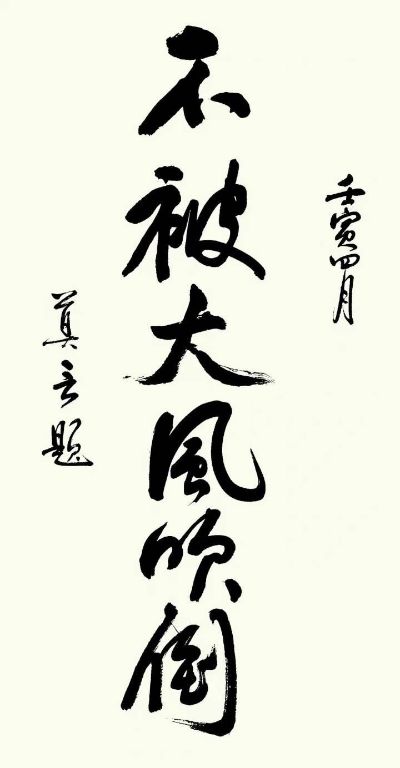 壬寅四月
不被大風吹倒
莫言题